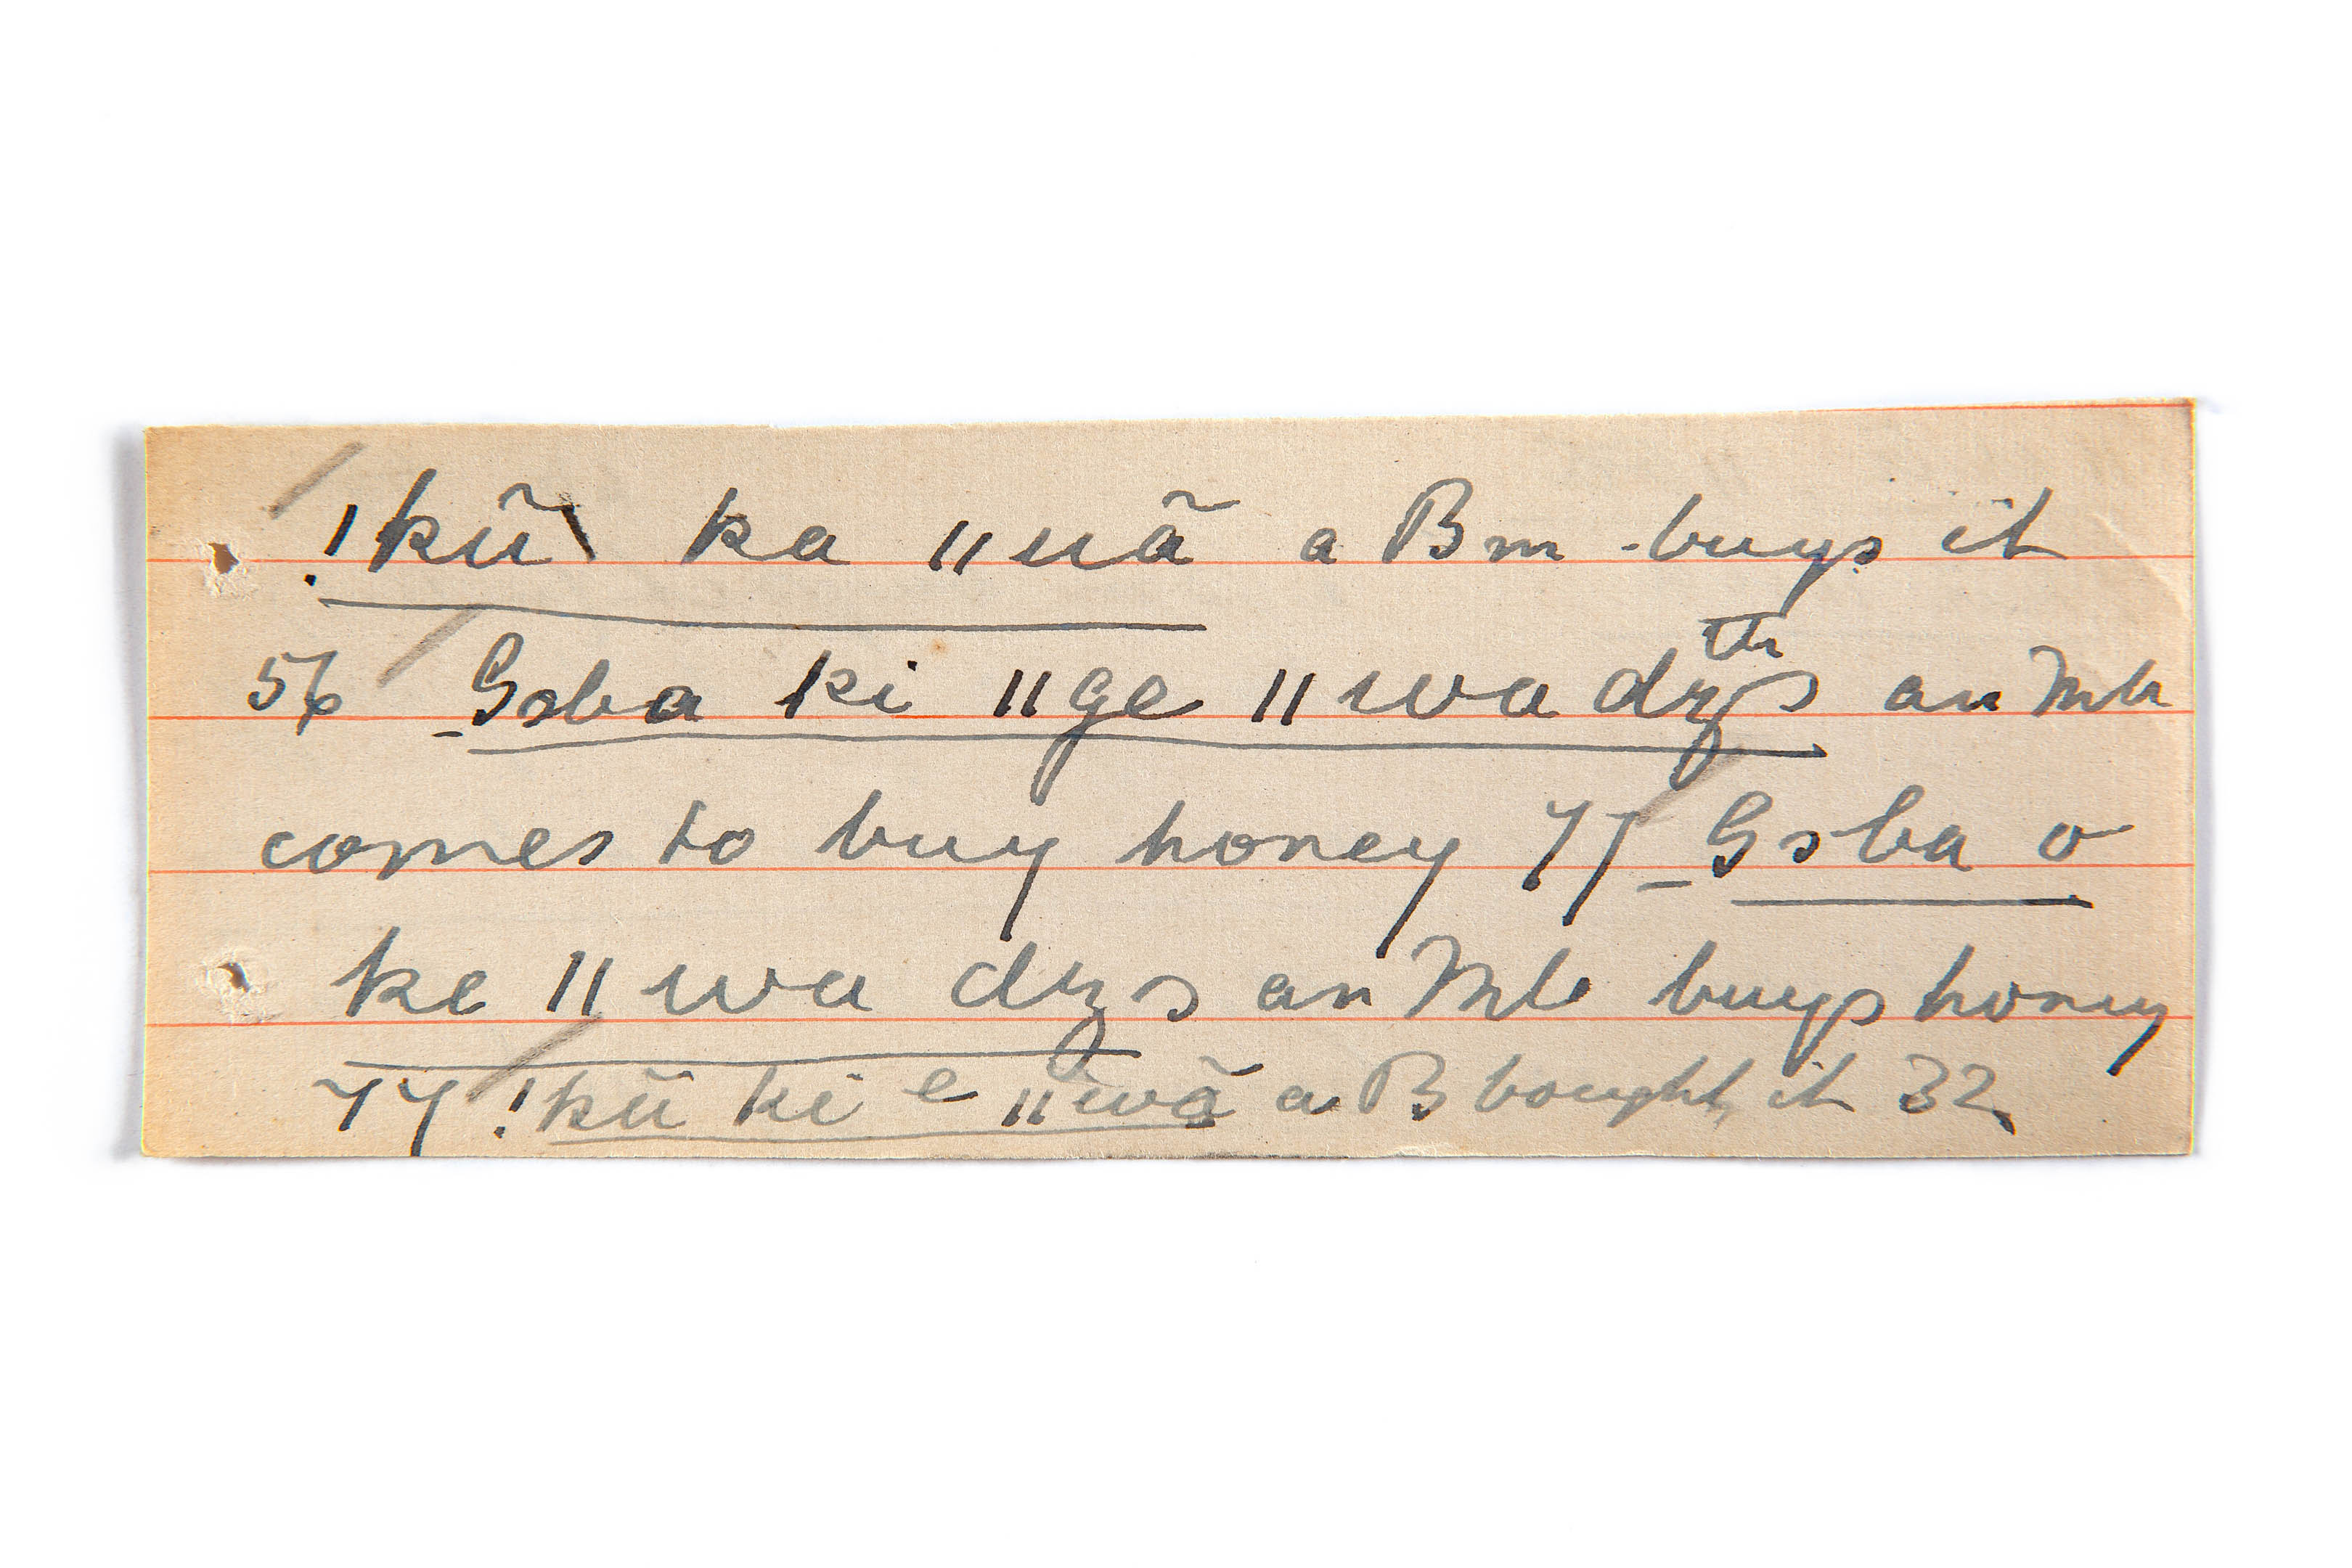 !kũ\ ka ǁuã a Bm - buys it
56 _Gɔba ki ǁge ǁwa dzɔ an Mb
comes to buy honey 77 _Gɔba o
ke ǁwa dzɔ an Mb buys honey
77 !kũ ki e ǁwã a B bought it 32